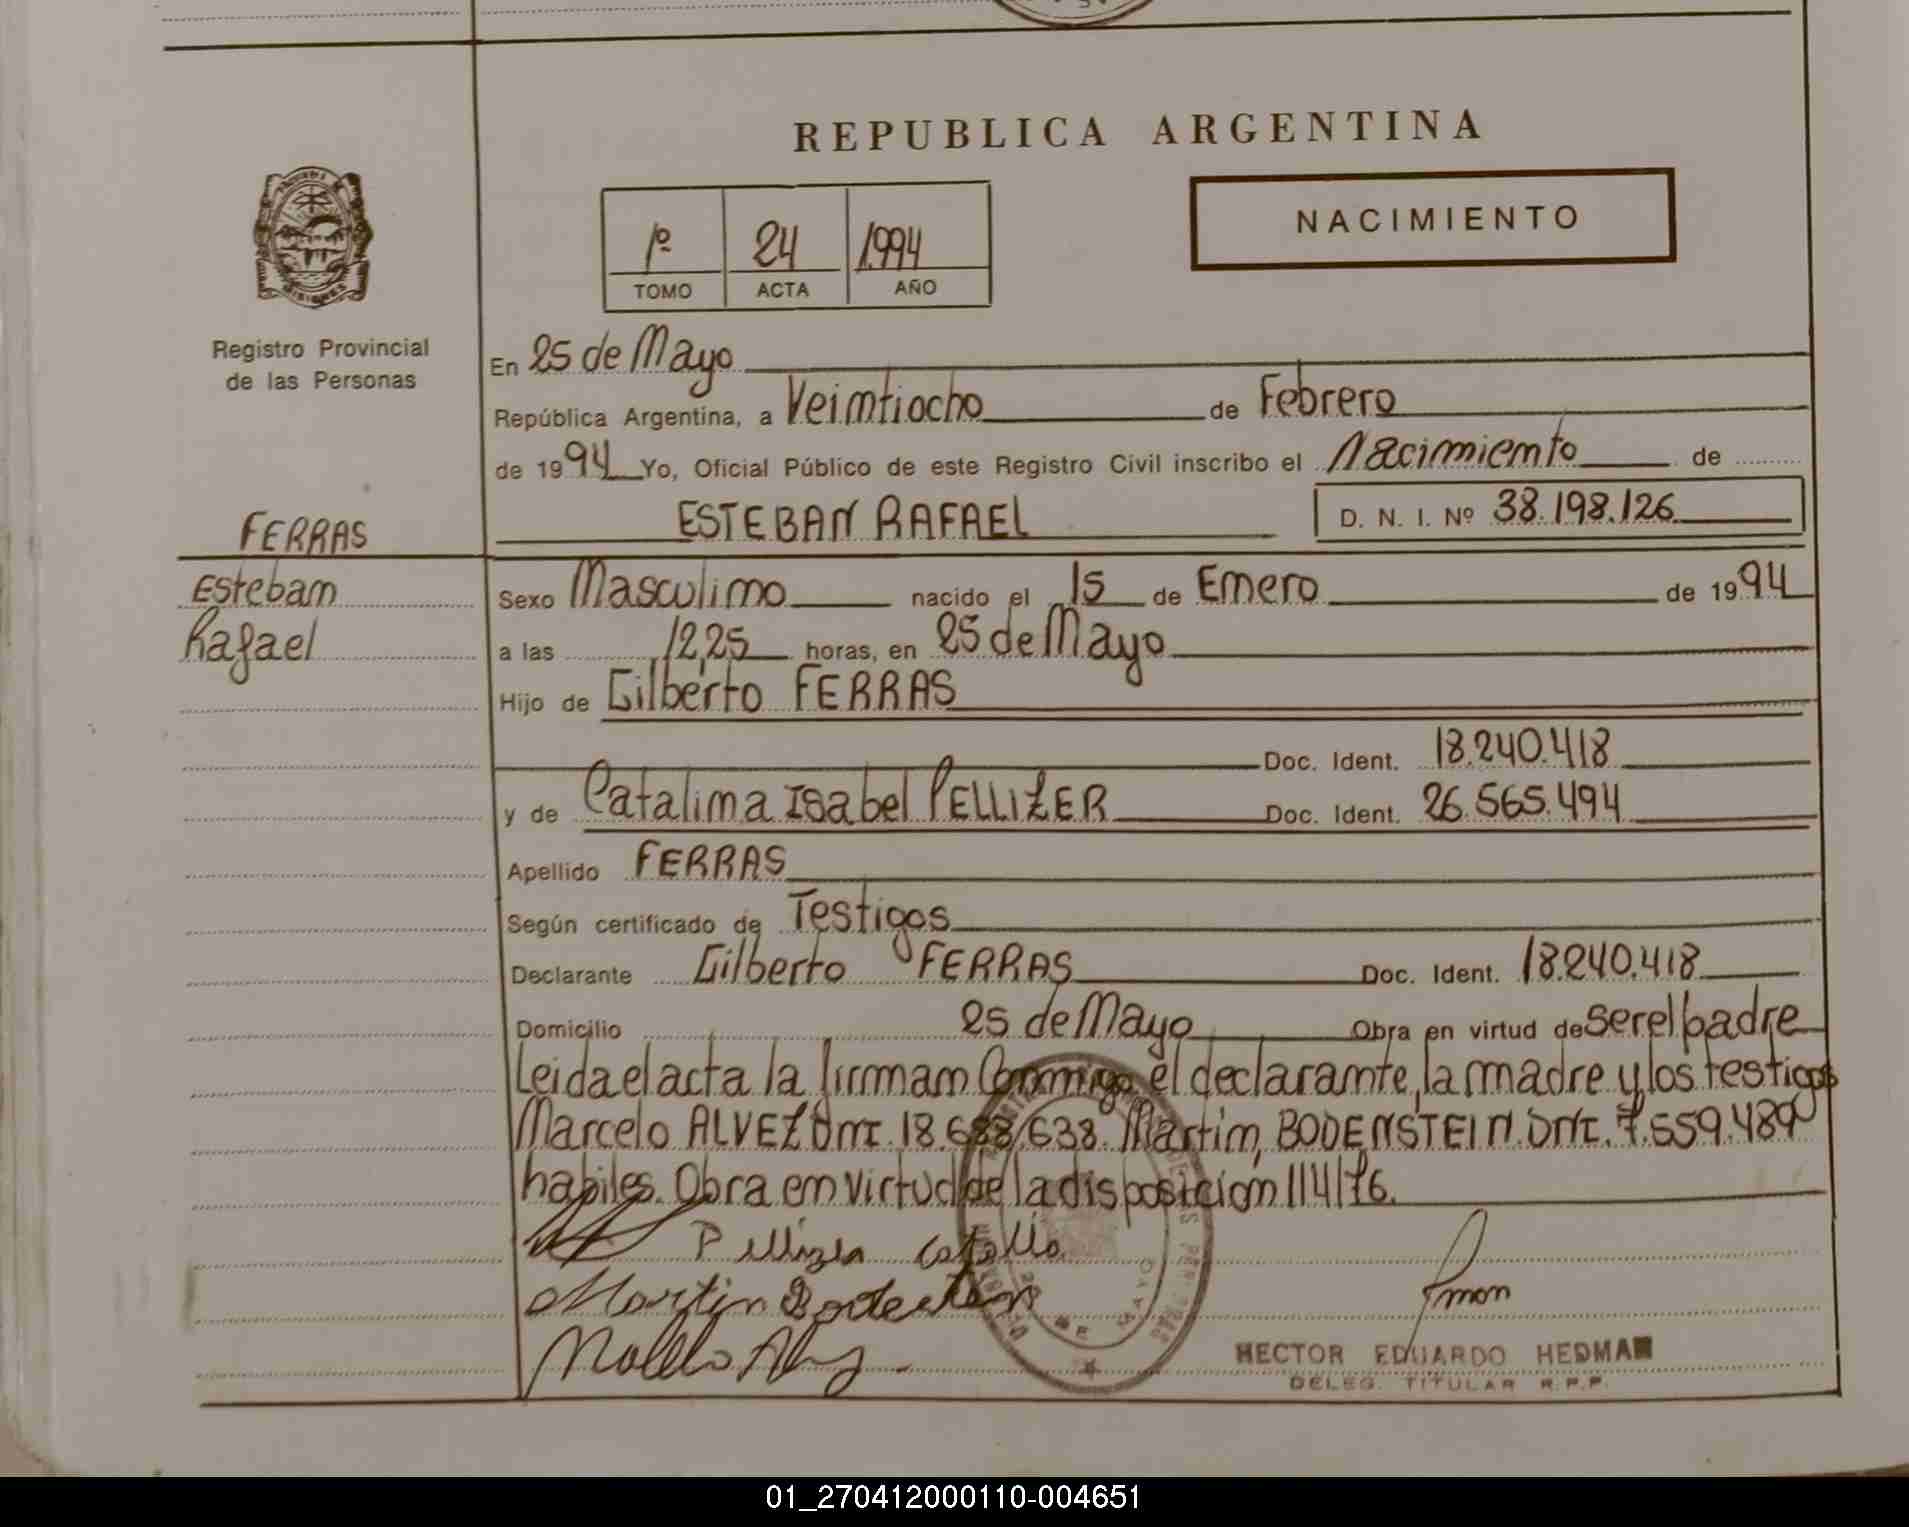 REPUBLICA ARGENTINA
NACIMIENTO
1º 24 1994
TOMO ACTA AÑO
Registro Provincial
de las Personas
En 25 de Mayo
República Argentina, a Veintiocho de Febrero
de 1994 Yo, Oficial Público de este Registro Civil inscribo el Nacimiento de
ESTEBAN RAFAEL D. N. I. Nº 38.198.126
FERRAS
Esteban
Rafael
Sexo Masculino nacido el 15 de Enero de 1994
a las 12,25 horas, en 25 de Mayo
Hijo de Gilberto FERRAS
Doc. Ident. 18.240.418
y de Catalina Isabel PELLIZER Doc. Ident. 26.565.494
Apellido FERRAS
Según certificado de Testigos
Declarante Gilberto FERRAS Doc. Ident. 18.240.418
Domicilio 25 de Mayo Obra en virtud de ser el padre
Leida el acta la firman Conmigo el declarante, la madre y los testigos
Marcelo ALVEZ DNI. 18.688.638. Martin, BODENSTEIN. DNI. 7.559.489
habiles. Obra en virtud de la disposicion 114/76.
Martin
HECTOR EDUARDO HEDMAN
DELEG. TITULAR R.P.P.
01_270412000110-004651